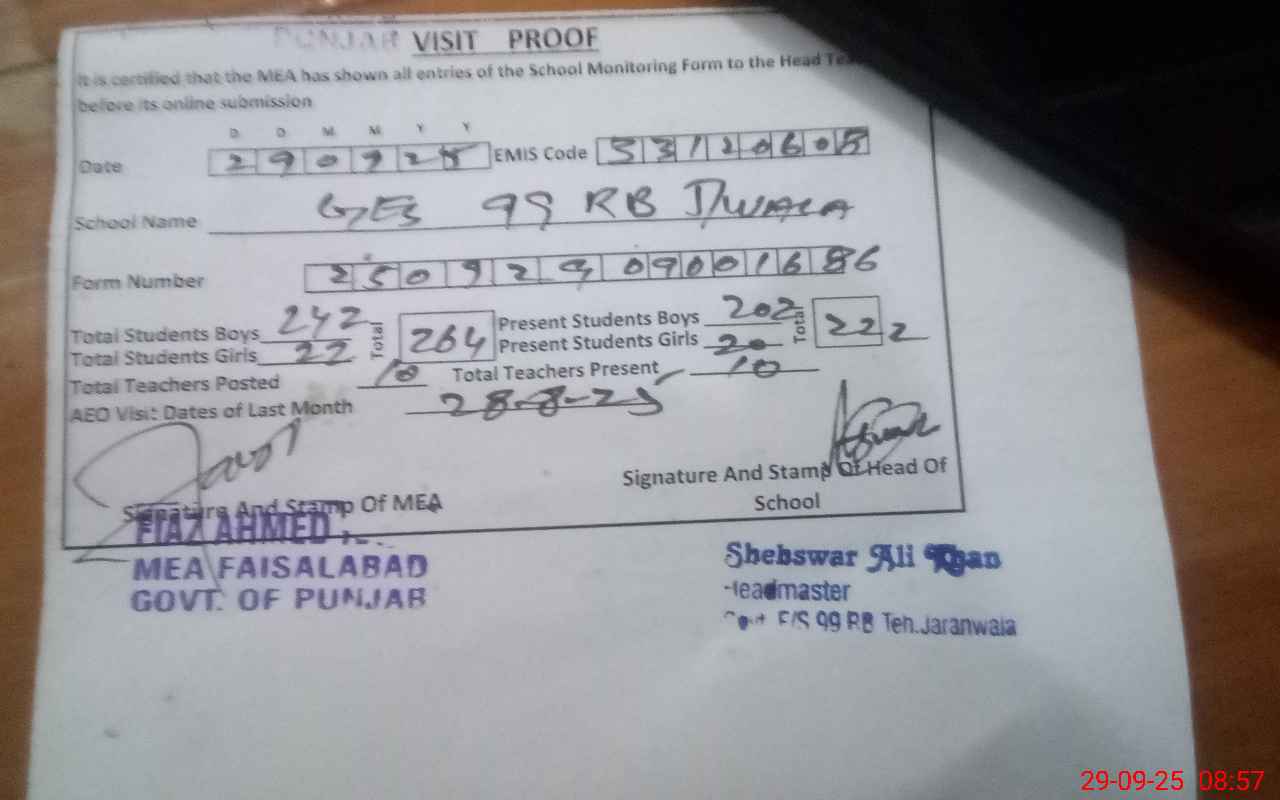 PUNJAB VISIT PROOF
It is certified that the MEA has shown all entries of the School Monitoring Form to the Head
before its online submission
D D M M Y Y
Date 290925 EMIS Code 33120605
School Name GES 99 RB
Form Number 2509290900168 86
Total Students Boys 242 Total 264 Present Students Boys 202 Total 222
Total Students Girls 22 Present Students Girls 20
Total Teachers Posted 10 Total Teachers Present 10
AEO Visit Dates of Last Month 28-8-25
Signature And Stamp Of Head Of
School
Signature And Stamp Of MEA
FIAZ AHMED
MEA FAISALABAD
GOVT. OF PUNJAB
Shebswar Ali Khan
Headmaster
Govt E/S 99 RB Teh.Jaranwala
29-09-25 08:57